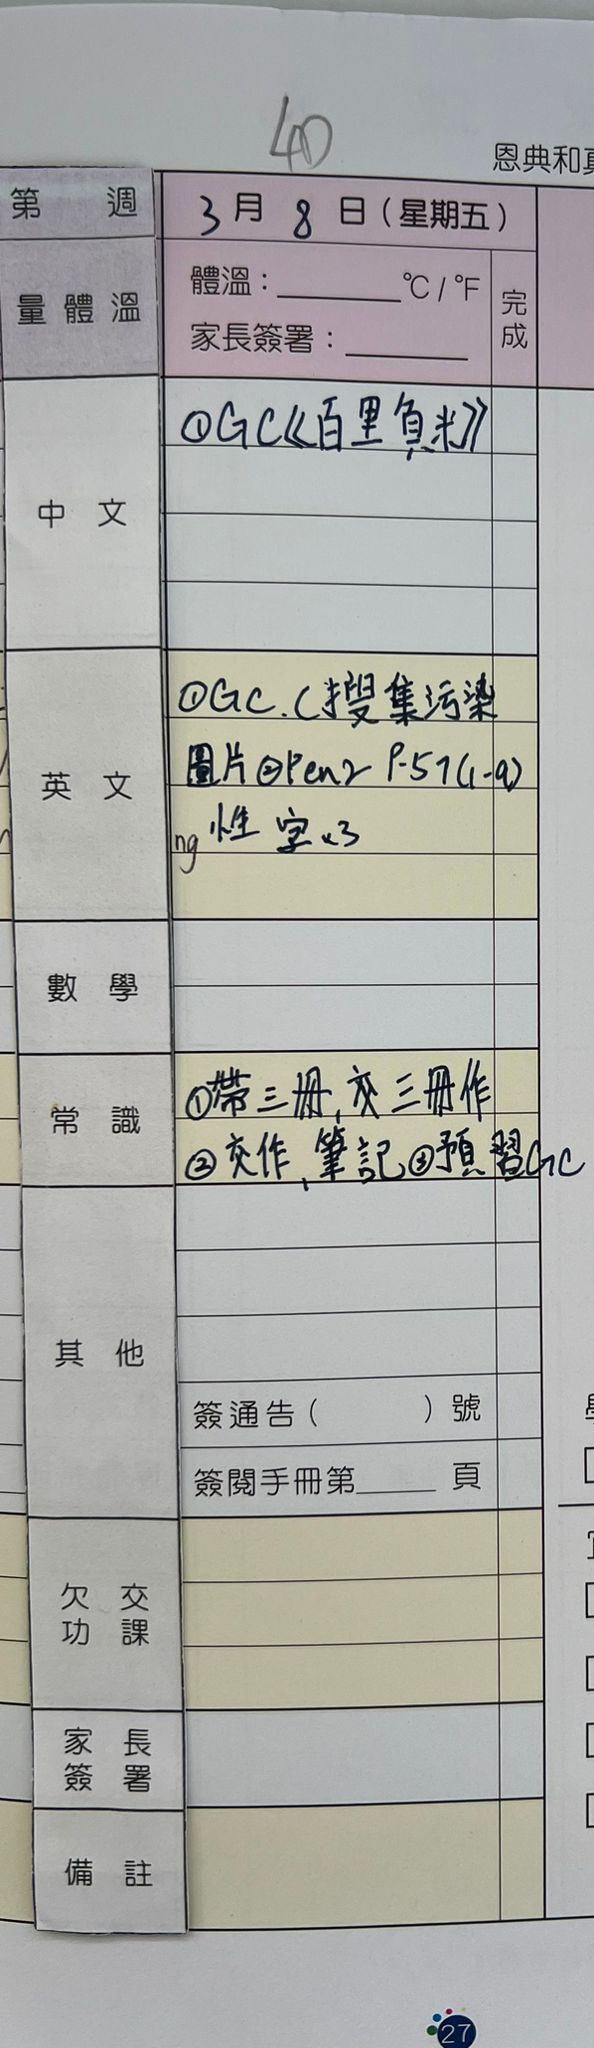 40
恩典和真
第 週
3月8日(星期五)
量體溫
體溫：______°C/°F
家長簽署：______
完成
中文
①GC《百里負米》
英文
①GC.(搜集污染
圖片②Pen2 P.57(1-9)
ng 性字x3
數學
常識
①帶三冊,交三冊作
②交作、筆記③預習GC
其他
簽通告( )號
簽閱手冊第_____頁
欠交
功課
家長
簽署
備註
27